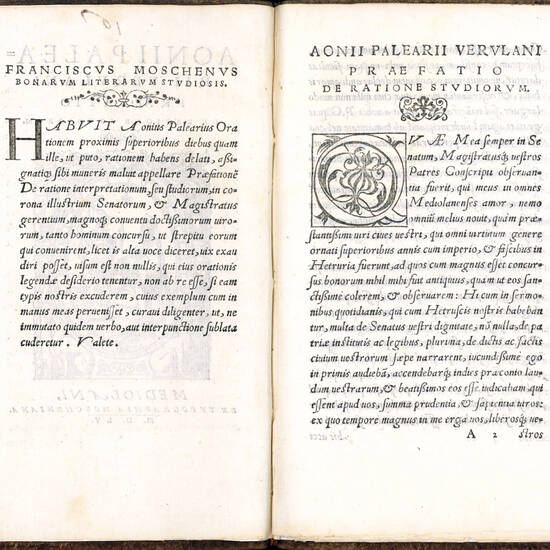 107
FRANCISCVS MOSCHENVS
BONARVM LITERARVM STVDIOSIS.
HABVIT Aonius Palearius Ora
tionem proximis superioribus diebus quam
ille, ut puto, rationem habens delati, assi-
gnatiq; sibi muneris maluit appellare Præfationē
De ratione interpretationum, seu studiorum, in co
rona illustrium Senatorum, & Magistratus
gerentum, magnoq; conuentu doctissimorum uiro-
rum, tanto hominum concursu, ut strepitu eorum
qui conuenirent, licet is alta uoce diceret, uix exau
diri posset, uisum est non nullis, qui eius orationis
legendæ desiderio tenentur, non ab re esse, si eam
typis nostris excuderem, cuius exemplum cum in
manus meas peruenisset, curaui diligenter, ut, ne
immutato quidem uerbo, aut interpunctione sublata
cuderetur. Valete.
AONII PALEARII VERVLANI
PRAEFATIO
DE RATIONE STVDIORVM.
QVÆ Mea semper in Se
natum, Magistratusq; uestros
Patres Conscripti obseruan
tia fuerit, qui meus in omnes
Mediolanenses amor, nemo
omniū melius nouit, quàm præ
stantissimi uiri ciues uestri, qui omni uirtutum genere
ornati superioribus annis cum imperio, & fascibus in
Hetruria fuerunt, ad quos cum magnus esset concur
sus bonorum nihil mihi fuit antiquius, quam ut eos san
ctissime colerem, & obseruarem: Hi cum in sermo-
nibus quotidianis, qui cum Hetruscis nostris habeban
tur, multa de Senatus uestri dignitate, nō nulla, de pa
triæ institutis ac legibus, plurima, de dictis ac factis
ciuium uestrorum sæpe narrarent, iucundissime ego
in primis audiebā, accendebarq; indies præconio lau
dum uestrarum, & beatissimos eos esse iudicabam qui
essent apud uos, summa prudentia, & sapientia uiros:
ex quo tempore magnus in me erga uos, liberosq; ue-
A 2 stros